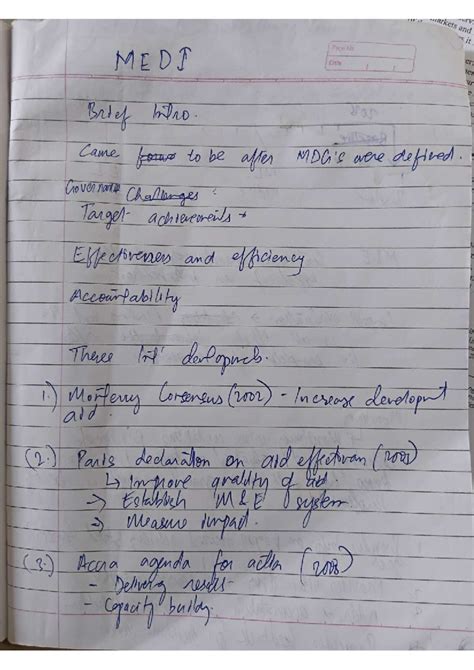 Page No.
Date
MEDI
Brief Intro.
Came to be after MDG's were defined.
Governance Challenges :
Target achievements
Effectiveness and efficiency
Accountability
Three Int'l developments.
1.) Monterrey Consensus (2002) - Increase development
aid.
(2.) Paris declaration on aid effectiveness
↳ Improve quality of aid.
→ Establish M&E system
→ Measure impact.
(3.) Accra agenda for action (2008)
- Delivering results
- Capacity building
markets and